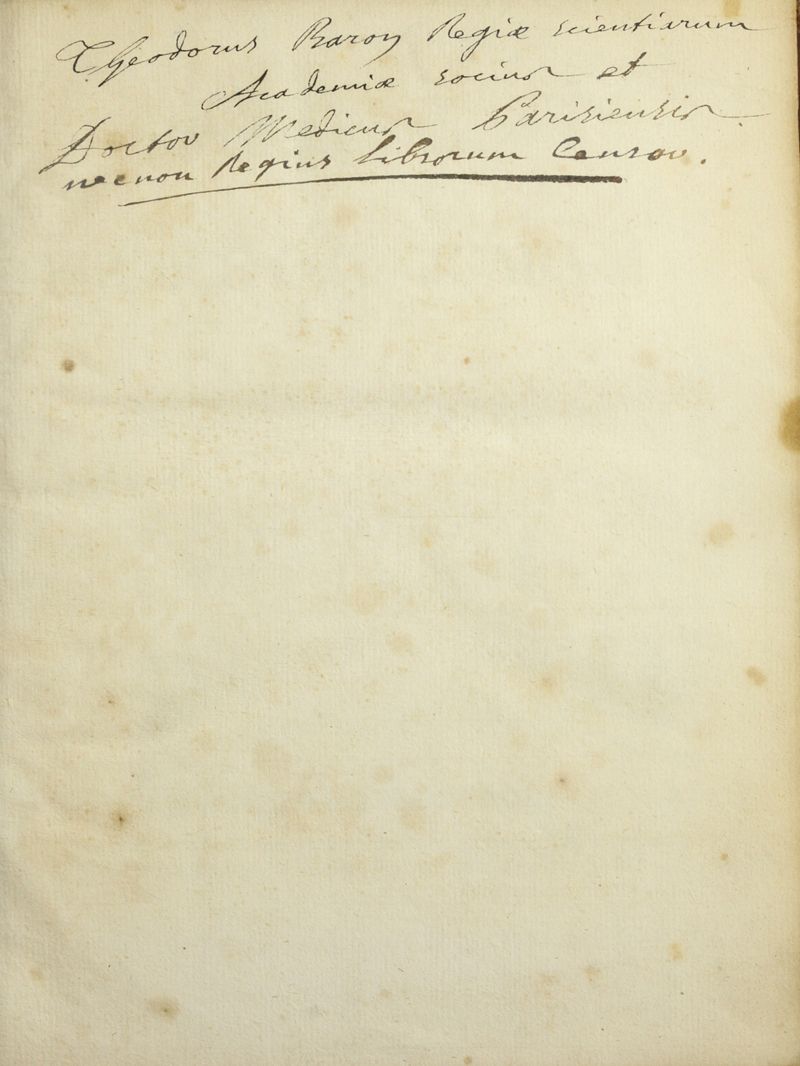 Theodorus Baron Regiæ scientiarum
Academiæ socius et
Doctor Medicus Parisiensis
necnon Regius librorum Censor.